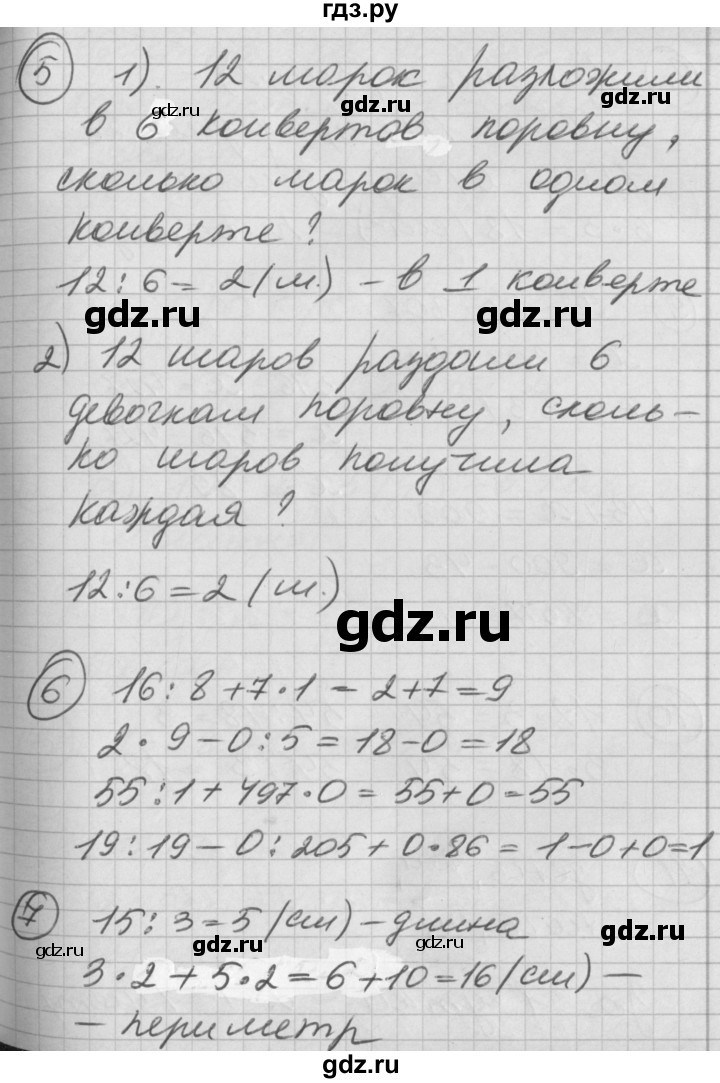 гдз.ру
5 1) 12 марок разложили
gdz.ru gdz.ru
в 6 конвертов поровну,
сколько марок в одном
конверте?
12:6=2(м.) – в 1 конверте
gdz.ru gdz.ru
2) 12 шаров раздали 6
девочкам поровну, сколь-
ко шаров получила
каждая?
12:6=2(ш.)
gdz.ru
6 16:8+7·1=2+7=9
2·9-0:5=18-0=18
55:1+497·0=55+0=55
19:19-0:205+0·86=1-0+0=1
7 15:3=5(см) – длина
gdz.ru gdz.ru
3·2+5·2=6+10=16(см) –
– периметр
gdz.ru
gdz.ru